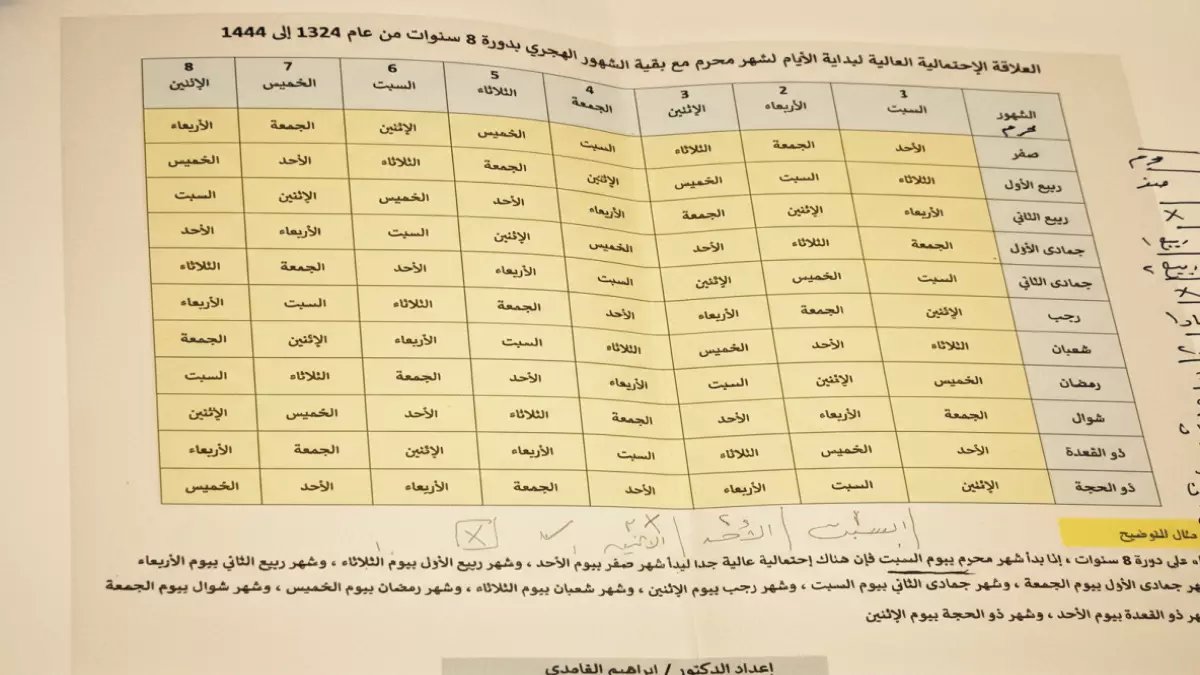 العلاقة الإحتمالية العالية لبداية الأيام لشهر محرم مع بقية الشهور الهجري بدورة 8 سنوات من عام 1324 إلى 1444
الشهور 1 2 3 4 5 6 7 8
محرم السبت الأربعاء الإثنين الجمعة الثلاثاء السبت الخميس الإثنين
صفر الأحد الجمعة الثلاثاء السبت الخميس الإثنين الجمعة الأربعاء
ربيع الأول الثلاثاء السبت الخميس الإثنين الجمعة الثلاثاء الأحد الخميس
ربيع الثاني الأربعاء الإثنين الجمعة الأربعاء الأحد الخميس الإثنين السبت
جمادى الأول الجمعة الثلاثاء الأحد الخميس الإثنين السبت الأربعاء الأحد
جمادى الثاني السبت الخميس الإثنين السبت الأربعاء الأحد الجمعة الثلاثاء
رجب الإثنين الجمعة الأربعاء الأحد الجمعة الثلاثاء السبت الأربعاء
شعبان الثلاثاء الأحد الخميس الثلاثاء السبت الأربعاء الإثنين الجمعة
رمضان الخميس الإثنين السبت الأربعاء الأحد الجمعة الثلاثاء السبت
شوال الجمعة الأربعاء الأحد الجمعة الثلاثاء الأحد الخميس الإثنين
ذو القعدة الأحد الخميس الثلاثاء السبت الأربعاء الإثنين الجمعة الأربعاء
ذو الحجة الإثنين السبت الأربعاء الأحد الجمعة الأربعاء الأحد الخميس
صفر
X
ربيع ١
ربيع ٢
X
السبت الأحد الاثنين X
مثال للتوضيح
على دورة 8 سنوات ، إذا بدأ شهر محرم بيوم السبت فإن هناك إحتمالية عالية جدا ليبدأ شهر صفر بيوم الأحد ، وشهر ربيع الأول بيوم الثلاثاء ، وشهر ربيع الثاني بيوم الأربعاء
جمادى الأول بيوم الجمعة ، وشهر جمادى الثاني بيوم السبت ، وشهر رجب بيوم الإثنين ، وشهر شعبان بيوم الثلاثاء ، وشهر رمضان بيوم الخميس ، وشهر شوال بيوم الجمعة
ذو القعدة بيوم الأحد ، وشهر ذو الحجة بيوم الإثنين
إعداد الدكتور / إبراهيم الغامدي